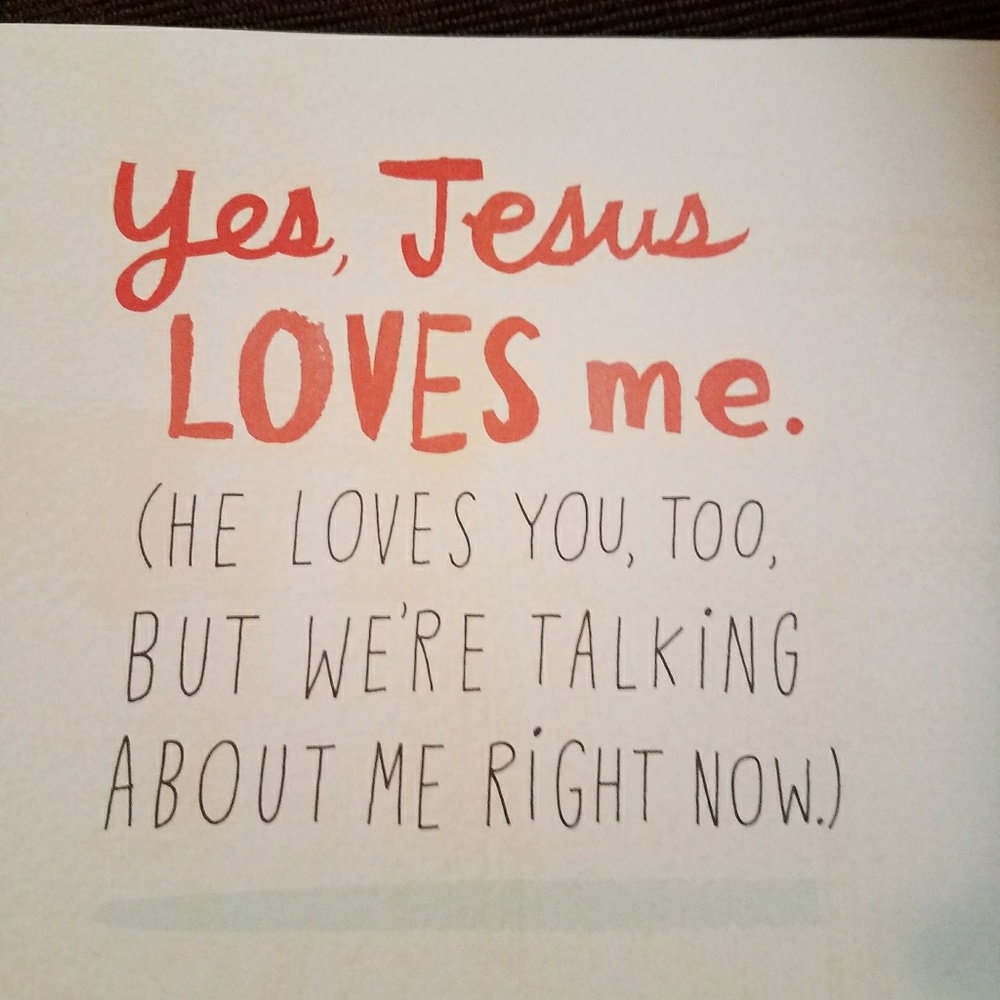 Yes, Jesus
LOVES me.
(HE LOVES YOU, TOO,
BUT WE'RE TALKiNG
ABOUT ME RiGHT NOW.)